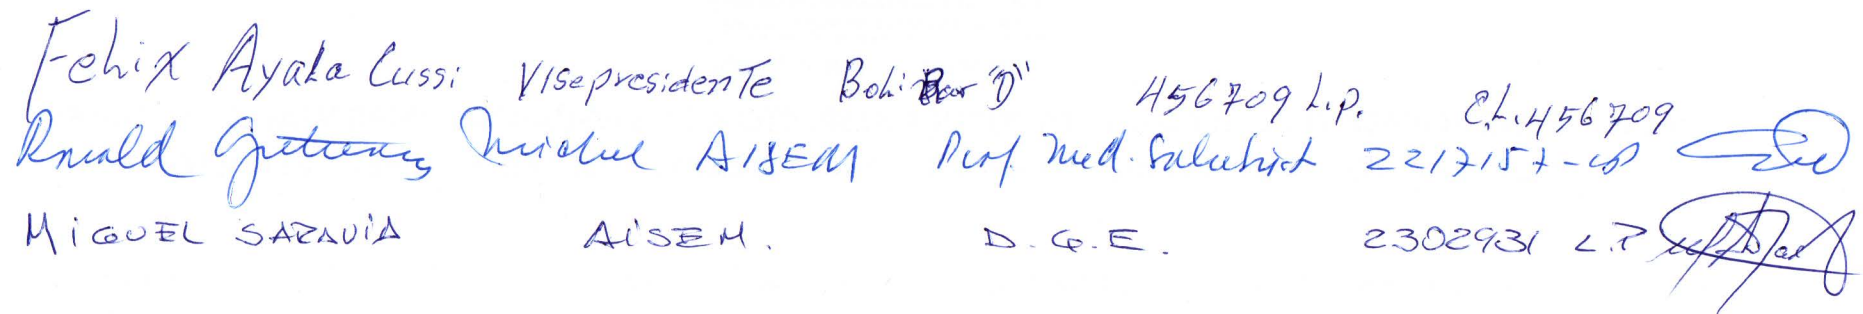 Felix Ayala Cussi Visepresidente Bolibar "D" 456709 L.p. C.L. 456709
Ronald Gutierrez Michel AISEM Prof. Med. 2217157-LP
MIGUEL SARAVIA AISEM. D.G.E. 2302931 L.P